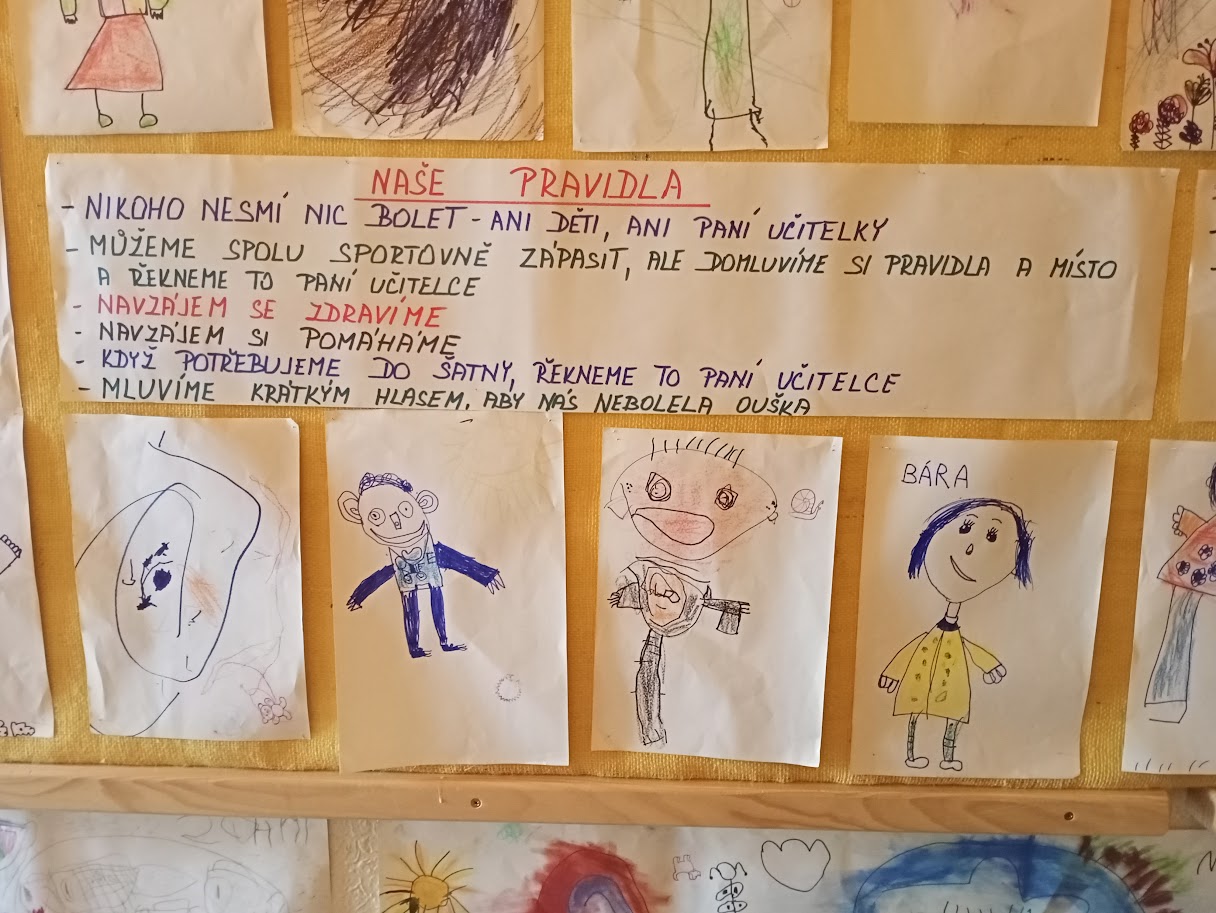 NAŠE PRAVIDLA
- NIKOHO NESMÍ NIC BOLET - ANI DĚTI, ANI PANÍ UČITELKY
- MŮŽEME SPOLU SPORTOVNĚ ZÁPASIT, ALE DOMLUVÍME SI PRAVIDLA A MÍSTO
A ŘEKNEME TO PANÍ UČITELCE
- NAVZÁJEM SE ZDRAVÍME
- NAVZÁJEM SI POMÁHÁME
- KDYŽ POTŘEBUJEME DO ŠATNY, ŘEKNEME TO PANÍ UČITELCE
- MLUVÍME KRÁTKÝM HLASEM, ABY NÁS NEBOLELA OUŠKA
BÁRA